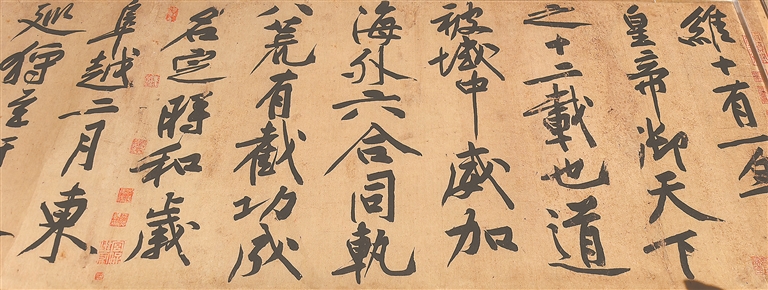 維十有一年
皇帝御天下
之十二載也道
被域中威加
海外六合同軌
八荒有截功成
名定時和歲
阜越二月東
巡狩至于